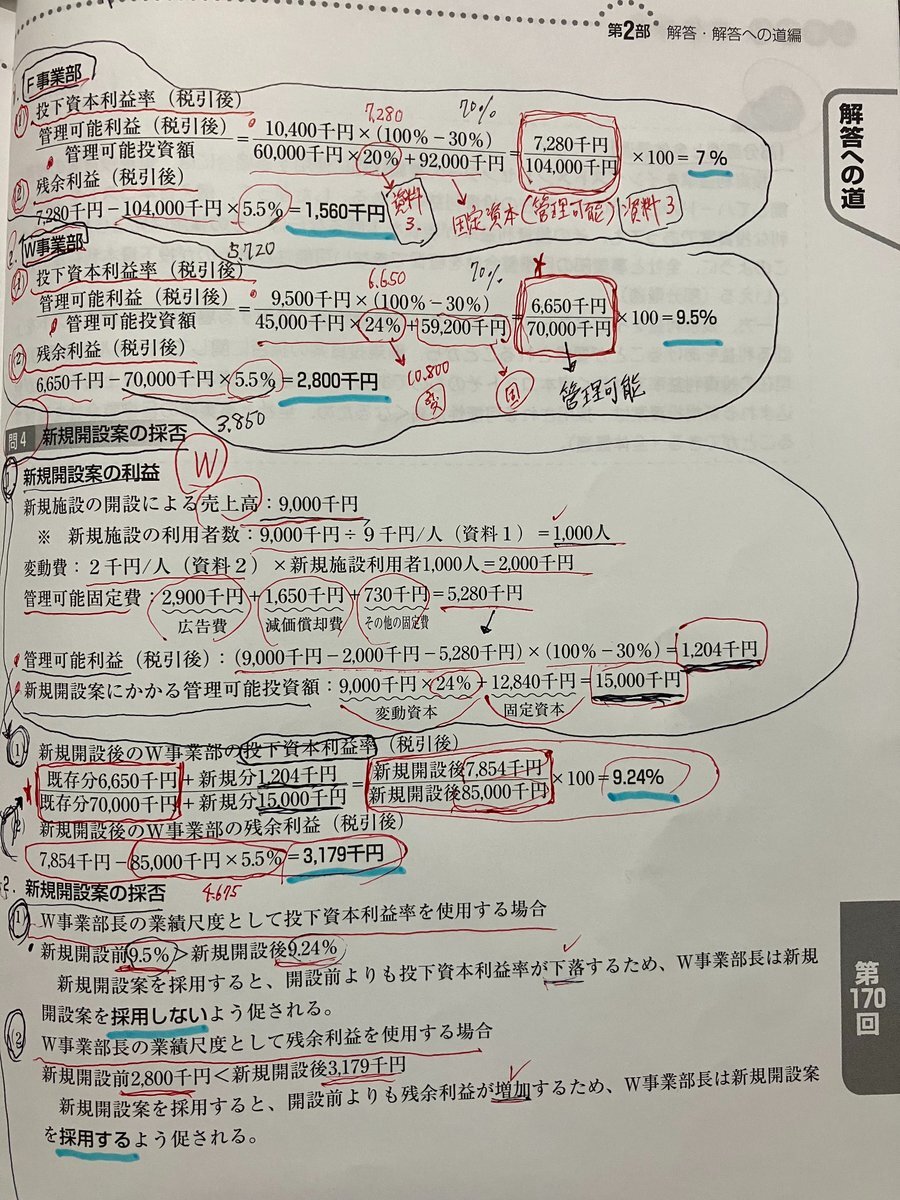 第2部 解答・解答への道編
解答への道
第170回
F事業部
① 投下資本利益率（税引後）
7,280 70%
管理可能利益（税引後）/管理可能投資額 = 10,400千円×(100%－30%)/60,000千円×20%＋92,000千円 = 7,280千円/104,000千円 ×100＝7%
② 残余利益（税引後）
7,280千円－104,000千円×5.5%＝1,560千円
資料3. 固定資本(管理可能) 資料3
5,720
2. W事業部
① 投下資本利益率（税引後）
6,650 70%
管理可能利益（税引後）/管理可能投資額 = 9,500千円×(100%－30%)/45,000千円×24%＋59,200千円 = 6,650千円/70,000千円 ×100＝9.5%
② 残余利益（税引後）
6,650千円－70,000千円×5.5%＝2,800千円
10,800 変 固 管理可能
3,850
問4 新規開設案の採否
W
新規開設案の利益
新規施設の開設による売上高：9,000千円
※ 新規施設の利用者数：9,000千円÷9千円/人（資料1）＝1,000人
変動費：2千円/人（資料2）×新規施設利用者1,000人＝2,000千円
管理可能固定費：2,900千円＋1,650千円＋730千円＝5,280千円
広告費 減価償却費 その他の固定費
管理可能利益（税引後）：(9,000千円－2,000千円－5,280千円)×(100%－30%)＝1,204千円
新規開設案にかかる管理可能投資額：9,000千円×24%＋12,840千円＝15,000千円
変動資本 固定資本
① 新規開設後のW事業部の投下資本利益率（税引後）
既存分6,650千円＋新規分1,204千円/既存分70,000千円＋新規分15,000千円 = 新規開設後7,854千円/新規開設後85,000千円 ×100＝9.24%
新規開設後のW事業部の残余利益（税引後）
7,854千円－85,000千円×5.5%＝3,179千円
4.675
2. 新規開設案の採否
① W事業部長の業績尺度として投下資本利益率を使用する場合
新規開設前9.5%＞新規開設後9.24%
新規開設案を採用すると、開設前よりも投下資本利益率が下落するため、W事業部長は新規
開設案を採用しないよう促される。
② W事業部長の業績尺度として残余利益を使用する場合
新規開設前2,800千円＜新規開設後3,179千円
新規開設案を採用すると、開設前よりも残余利益が増加するため、W事業部長は新規開設案
を採用するよう促される。